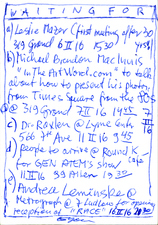 WAITING FOR
a) Leslie Mazer (first meeting after 30 years)
319 Grand 6 II 16 1530
b) Michael Brendon MacInnis
"InTheArtWord.com" to talk
about how to present his photos
from Times Square from the 90s
@ 319 Grand 7 II 16 14
c) Dr. @ Lyme
566 7th Ave 11 II 16 9
d) people to arrive @ Round K
for GEN ATEM's show
11 II 16 99 Allen 19 30
e) Andrea @
Metrograph @ 7 Ludlow for opening
reception of 16 II 16